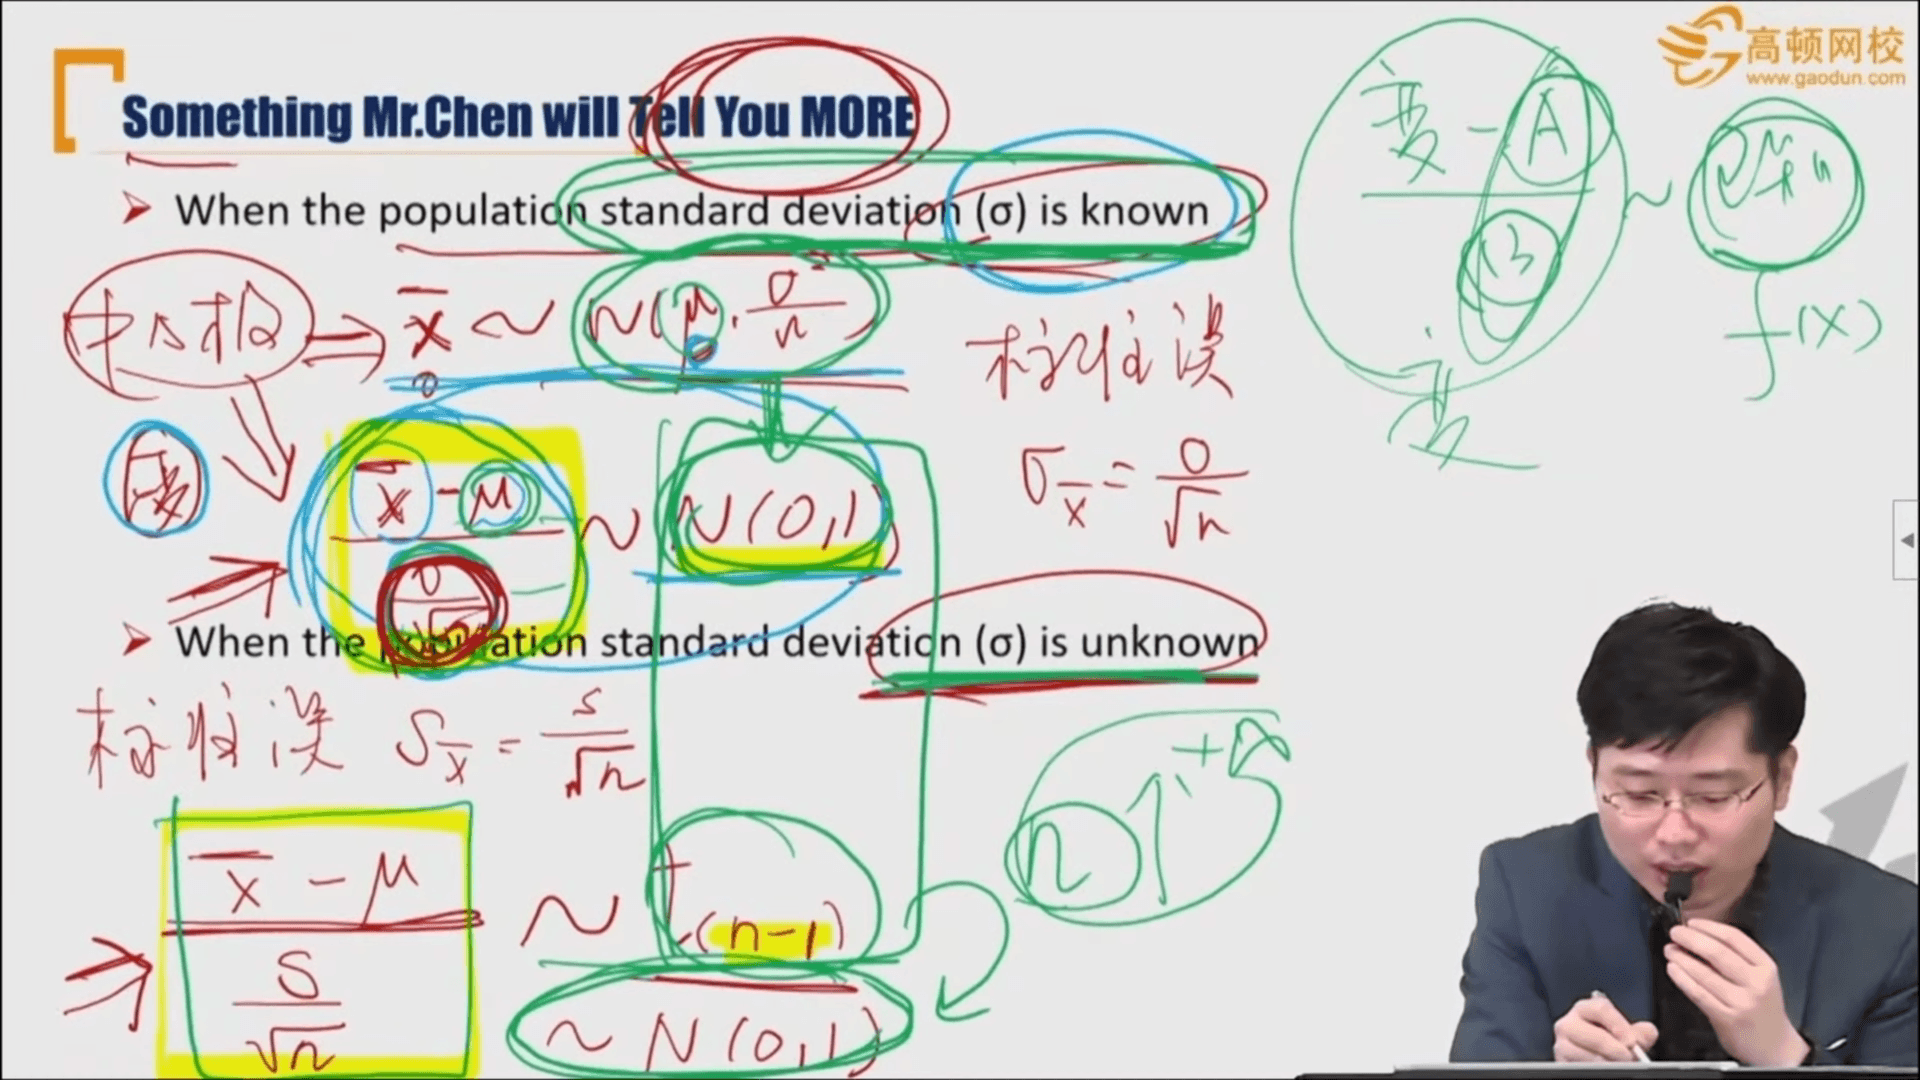 高顿网校
www.gaodun.com
Something Mr.Chen will Tell You MORE
变 - A
B
f(x)
➤ When the population standard deviation (σ) is known
中心极 ⇒ x̄ ~ N(μ, σ²/n)
标准误
σx̄ = σ/√n
(x̄ - μ)/(σ/√n) ~ N(0,1)
➤ When the population standard deviation (σ) is unknown
标准误 Sx̄ = s/√n
n ↑ +∞
(x̄ - μ)/(S/√n) ~ t(n-1)
~ N(0,1)